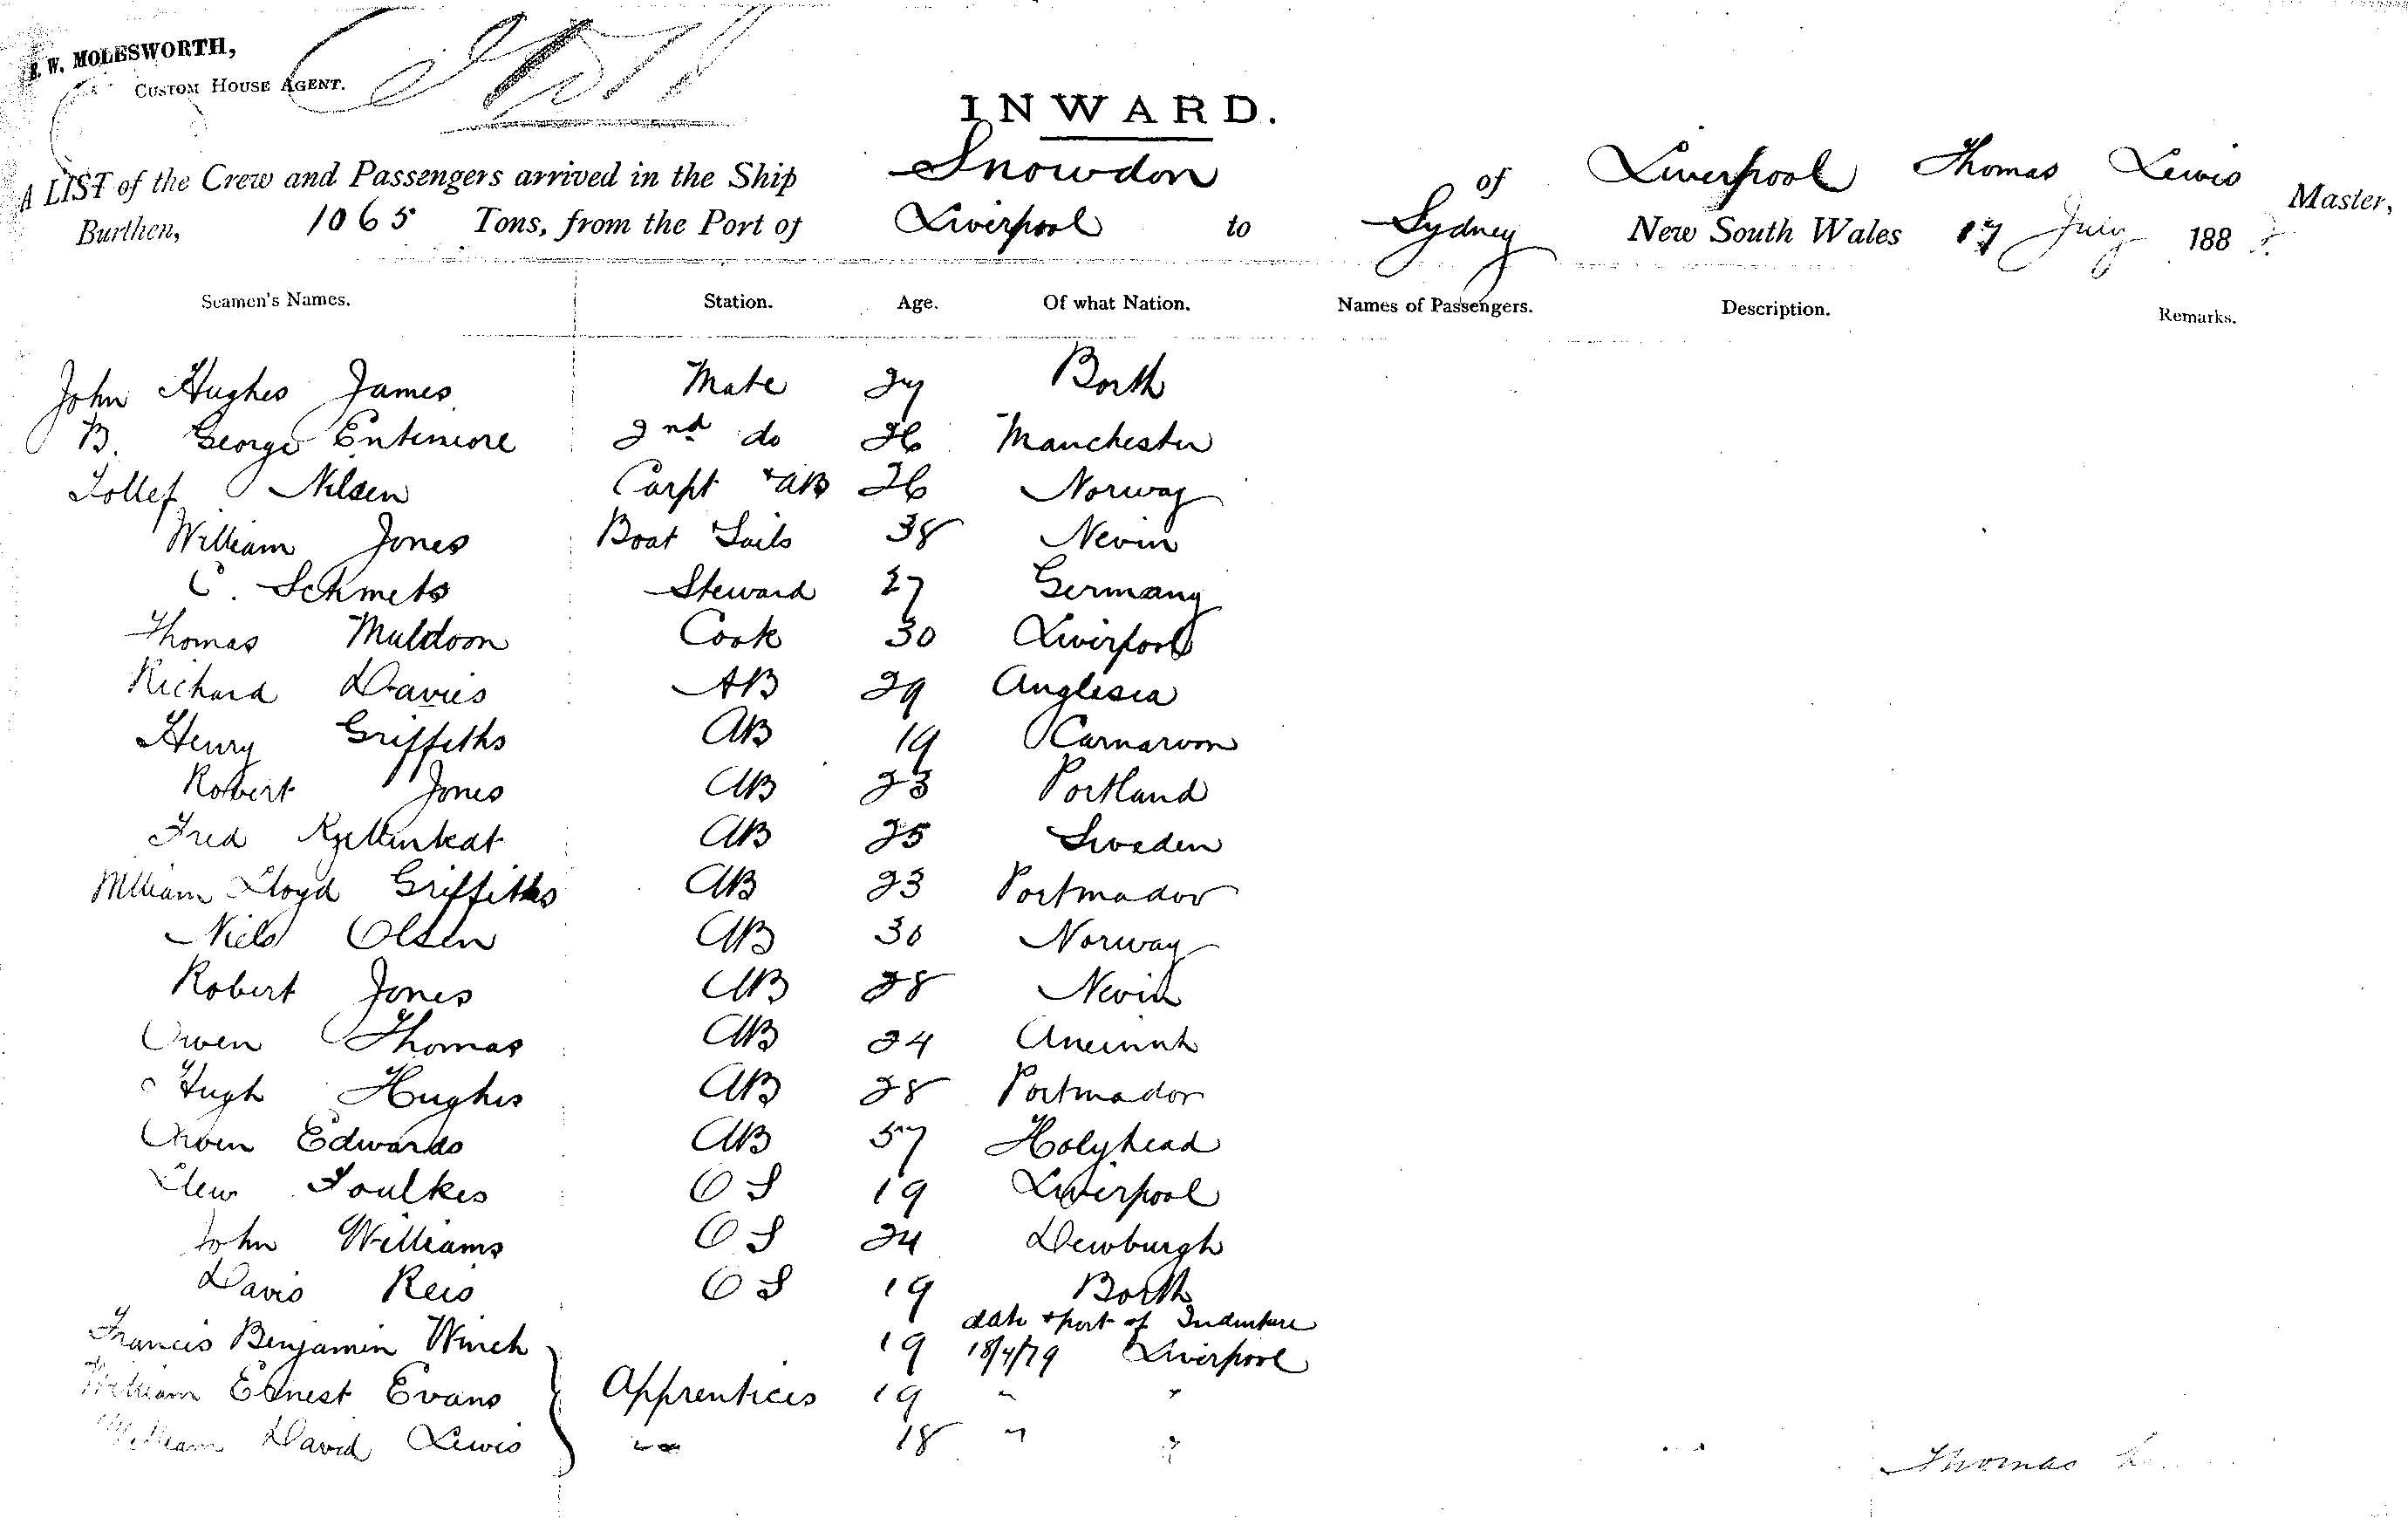 W. MOLESWORTH,
CUSTOM HOUSE AGENT.
INWARD.
A LIST of the Crew and Passengers arrived in the Ship Snowdon of Liverpool Thomas Lewis Master,
Burthen, 1065 Tons, from the Port of Liverpool to Sydney New South Wales 17 July 188
Seamen's Names. Station. Age. Of what Nation. Names of Passengers. Description. Remarks.
John Hughes James Mate 27 Borth
B. George Entimore 2nd do 26 Manchester
Tollef Nilsen Carpt + AB 26 Norway
William Jones Boat Sails 38 Nevin
C. Schmets Steward 27 Germany
Thomas Muldoon Cook 30 Liverpool
Richard Davies AB 29 Anglesia
Henry Griffiths AB 19 Carnarvon
Robert Jones AB 23 Portland
Fred AB 25 Sweden
William Lloyd Griffiths AB 23 Portmador
Niels Olsen AB 30 Norway
Robert Jones AB 28 Nevin
Owen Thomas AB 24
Hugh Hughes AB 28 Portmador
Owen Edwards AB 57 Holyhead
Llew Foulkes OS 19 Liverpool
John Williams OS 24 Dewburgh
Davis Reis OS 19 Borth
date + port of Indenture
Francis Benjamin Winch 19 18/4/79 Liverpool
William Ernest Evans Apprentices 19 " "
William David Lewis " 18 " "
Thomas L